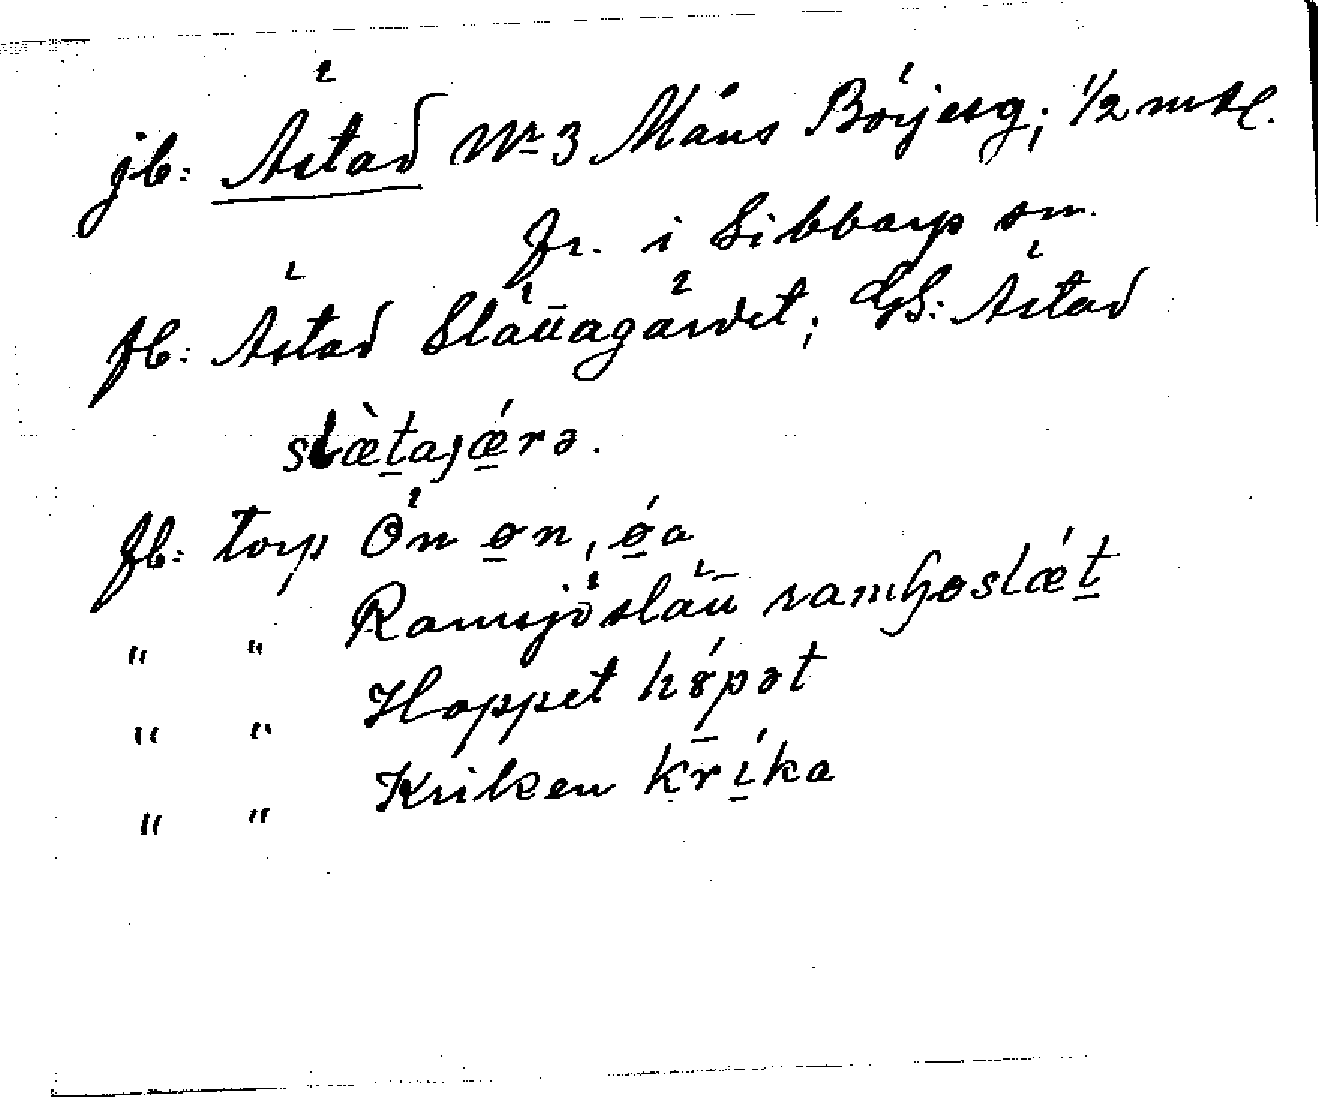 jb: Ästad Nr 3 Måns Börjesg; 1/2 mtl.
Jr. i Sibbarp sn.
Jb: Ästad Slättagärdet; GS: Ästad
slætajærə.
Jb: torp Ön øn, øa
" " Ramsjöslätt ramʃøslæt
" " Hoppet hɤpət
" " Kriken krika